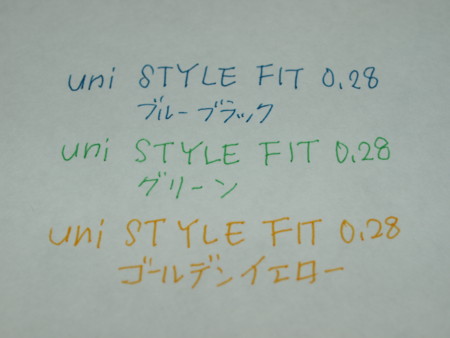 uni STYLE FIT 0.28
ブルーブラック
uni STYLE FIT 0.28
グリーン
uni STYLE FIT 0.28
ゴールデンイエロー